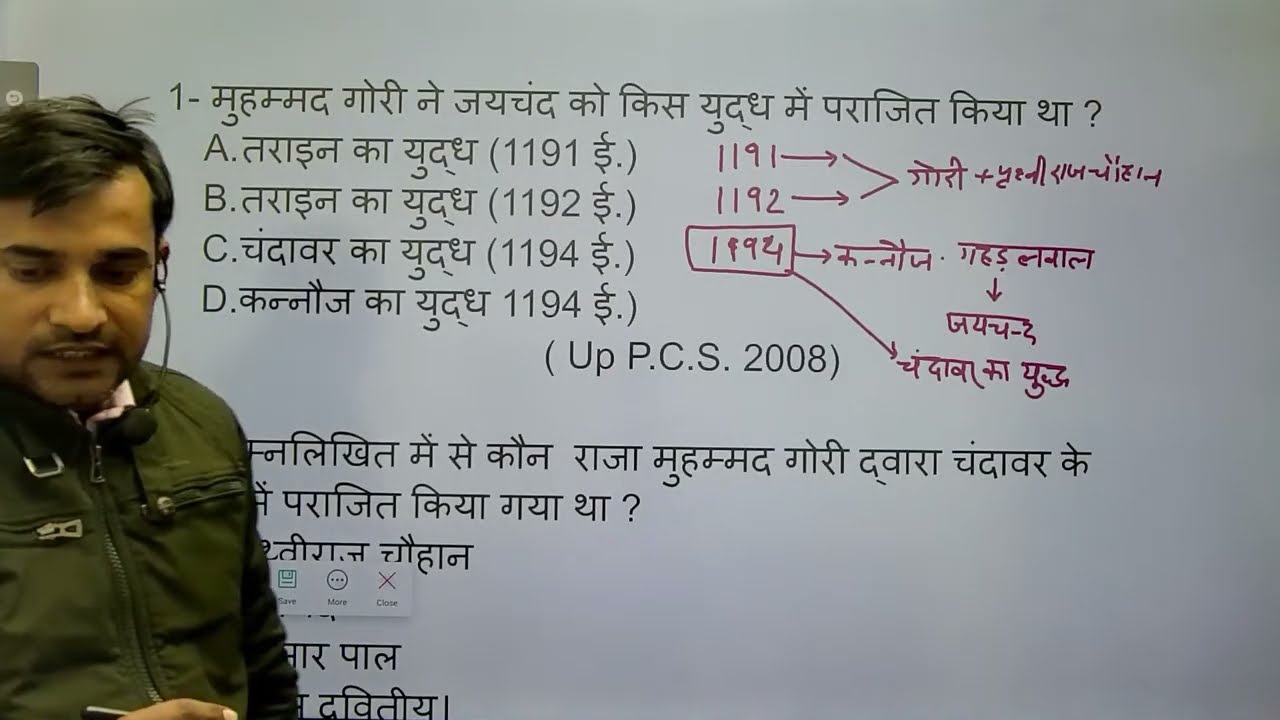 1- मुहम्मद गोरी ने जयचंद को किस युद्ध में पराजित किया था ?
A.तराइन का युद्ध (1191 ई.)
B.तराइन का युद्ध (1192 ई.)
C.चंदावर का युद्ध (1194 ई.)
D.कन्नौज का युद्ध 1194 ई.)
( Up P.C.S. 2008)
1191
1192
गोरी + पृथ्वीराज चौहान
1194
कन्नौज. गहड़लवाल
जयचन्द
चंदावर का युद्ध
म्नलिखित में से कौन राजा मुहम्मद गोरी द्वारा चंदावर के
में पराजित किया गया था ?
चौहान
Save More Close
पाल
द्वितीय।